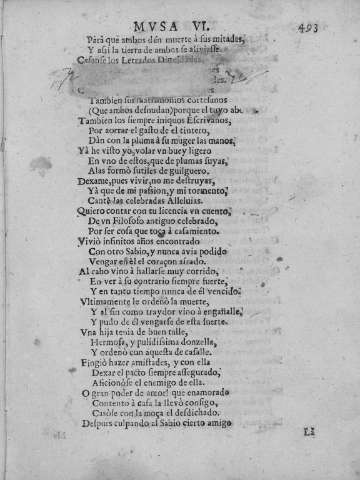 MVSA VI.
493
Para que ambos dén muerte à sus mitades,
Y assi la tierra de ambos se aliviasse.
Casanse los Letrados
Tambien sus matrimonios cortesanos
(Que ambos desnudan) porque el tuyo
Tambien los siempre iniquos Escrivanos,
Por aorrar el gasto de el tintero,
Dàn con la pluma à su muger las manos,
Yà he visto yo, volar vn buey ligero
En vno de estos, que de plumas suyas,
Alas formò sutiles de guilguero.
Dexame, pues vivir, no me destruyas,
Yà que de mi passion, y mi tormento,
Cantè las celebradas Alleluias.
Quiero contar con tu licencia vn cuento,
De vn Filosofo antiguo celebrado,
Por ser cosa que toca à casamiento.
Viviò infinitos años encontrado
Con otro Sabio, y nunca avia podido
Vengar en èl el coraçon airado.
Al cabo vino à hallarse muy corrido,
En ver à su contrario siempre fuerte,
Y en tanto tiempo nunca de èl vencido.
Vltimamente le ordenò la muerte,
Y al fin como traydor vino à engañalle,
Y pudo de èl vengarse de esta suerte.
Vna hija tenia de buen talle,
Hermosa, y pulidissima donzella,
Y ordenò con aquesta de casalle.
Fingiò hazer amistades, y con ella
Dexar el pacto siempre assegurado,
Aficionòse el enemigo de ella.
O gran poder de amor! que enamorado
Contento à casa la llevò consigo,
Casòse con la moça el desdichado.
Despues culpando al Sabio cierto amigo